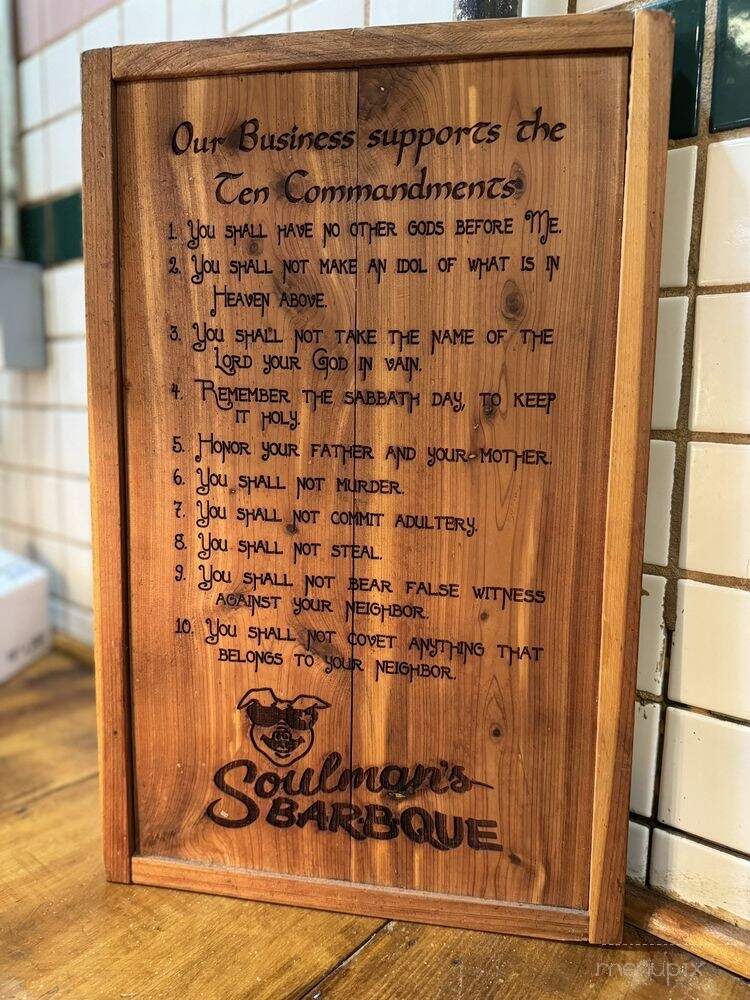 Our Business supports the
Ten Commandments
1. You shall have no other gods before Me.
2. You shall not make an idol of what is in
Heaven above.
3. You shall not take the name of the
Lord your God in vain.
4. Remember the sabbath day, to keep
it holy.
5. Honor your father and your mother.
6. You shall not murder.
7. You shall not commit adultery.
8. You shall not steal.
9. You shall not bear false witness
against your neighbor.
10. You shall not covet anything that
belongs to your neighbor.
Soulman's
BAR-B-QUE
menupix